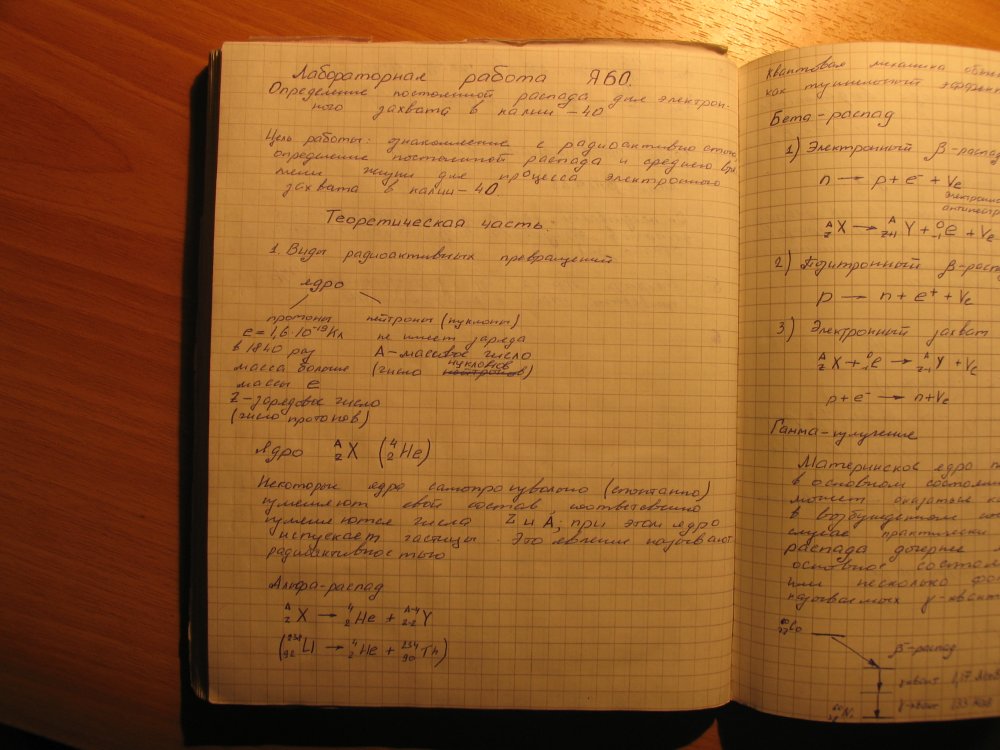 Лабораторная работа ЯБО.
Определение постоянной распада для электрон-
ного захвата в калии-40
Цель работы: ознакомление с радиоактивностью,
определение постоянной распада и среднего вре
мени жизни для процесса электронного
захвата в калии-40.
Теоретическая часть.
1. Виды радиоактивных превращений
ядро
протоны нейтроны (нуклоны)
e = 1,6·10⁻¹⁹ Кл не имеет заряда
в 1840 раз A-массовое число
масса больше (число нуклонов)
массы e
Z-зарядовое число
(число протонов)
Ядро ᴬ_Z X (⁴₂He)
Некоторые ядра самопроизвольно (спонтанно)
изменяют свой состав, соответственно
изменяются числа Z и A; при этом ядро
испускает частицы. Это явление называют
радиоактивностью
Альфа-распад
ᴬ_Z X → ⁴₂He + ᴬ⁻⁴_Z-2 Y
(²³⁸₉₂U → ⁴₂He + ²³⁴₉₀Th)
Квантовая механика
как туннельный эффект
Бета-распад
1) Электронный β-распад
n → p + e⁻ + νe
ᴬ_Z X → ᴬ_Z+1 Y + ⁰₋₁e + νe
2) Позитронный β-расп
p → n + e⁺ + νe
3) Электронный захват
ᴬ_Z X + ⁰₋₁e → ᴬ_Z-1 Y + νe
p + e⁻ → n + νe
Гамма-излучение
Материнское ядро
в основном состояни
может оказаться
в возбужденном
случае практически
распада дочернее
основное состоян
или несколько фо
называемых γ-квант
⁶⁰₂₇Co
β-распад
γ-квант 1,17
γ-квант 1,33
⁶⁰₂₈Ni